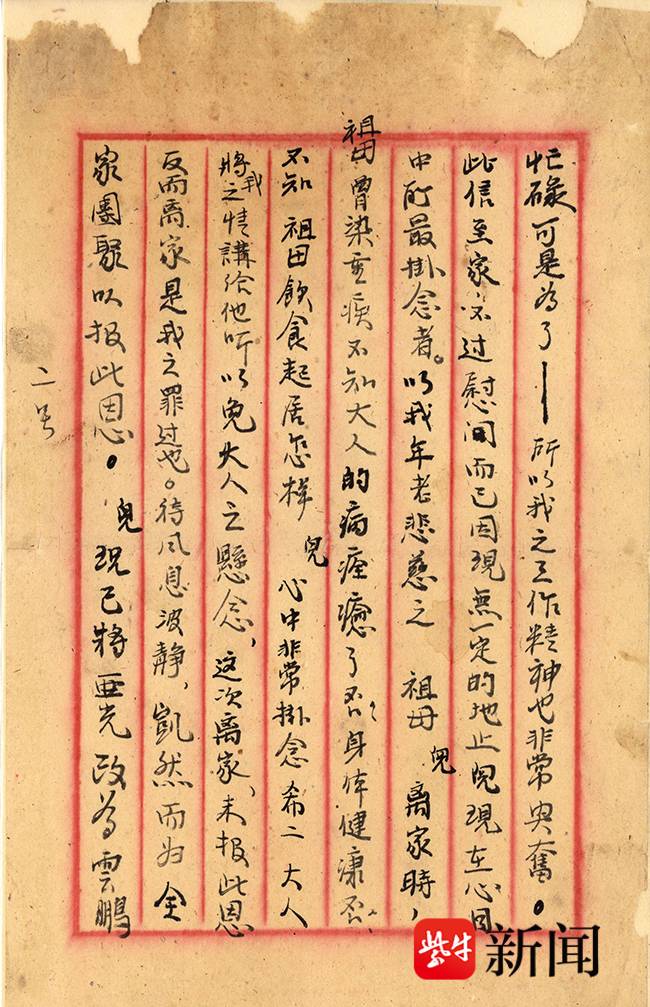 忙碌可是為了——所以我之工作精神也非常兴奮。
此信至家,不过慰问而已因現無一定的地止兒現在心目
中所最掛念者。以我年老悲慈之 祖母 兒 离家時,
祖母曾染重疾不知大人的病痊癒了否,身体健康否,
不知 祖母飲食起居怎样 兒 心中非常掛念希二大人
將我之情講给他听以免大人之懸念,这次离家,未报此恩
反而离家是我之罪过也。待风息波静,凱然而归全
家團聚以报此恩。 兒 現已將亜光改為雲鵬
二号
紫牛新闻